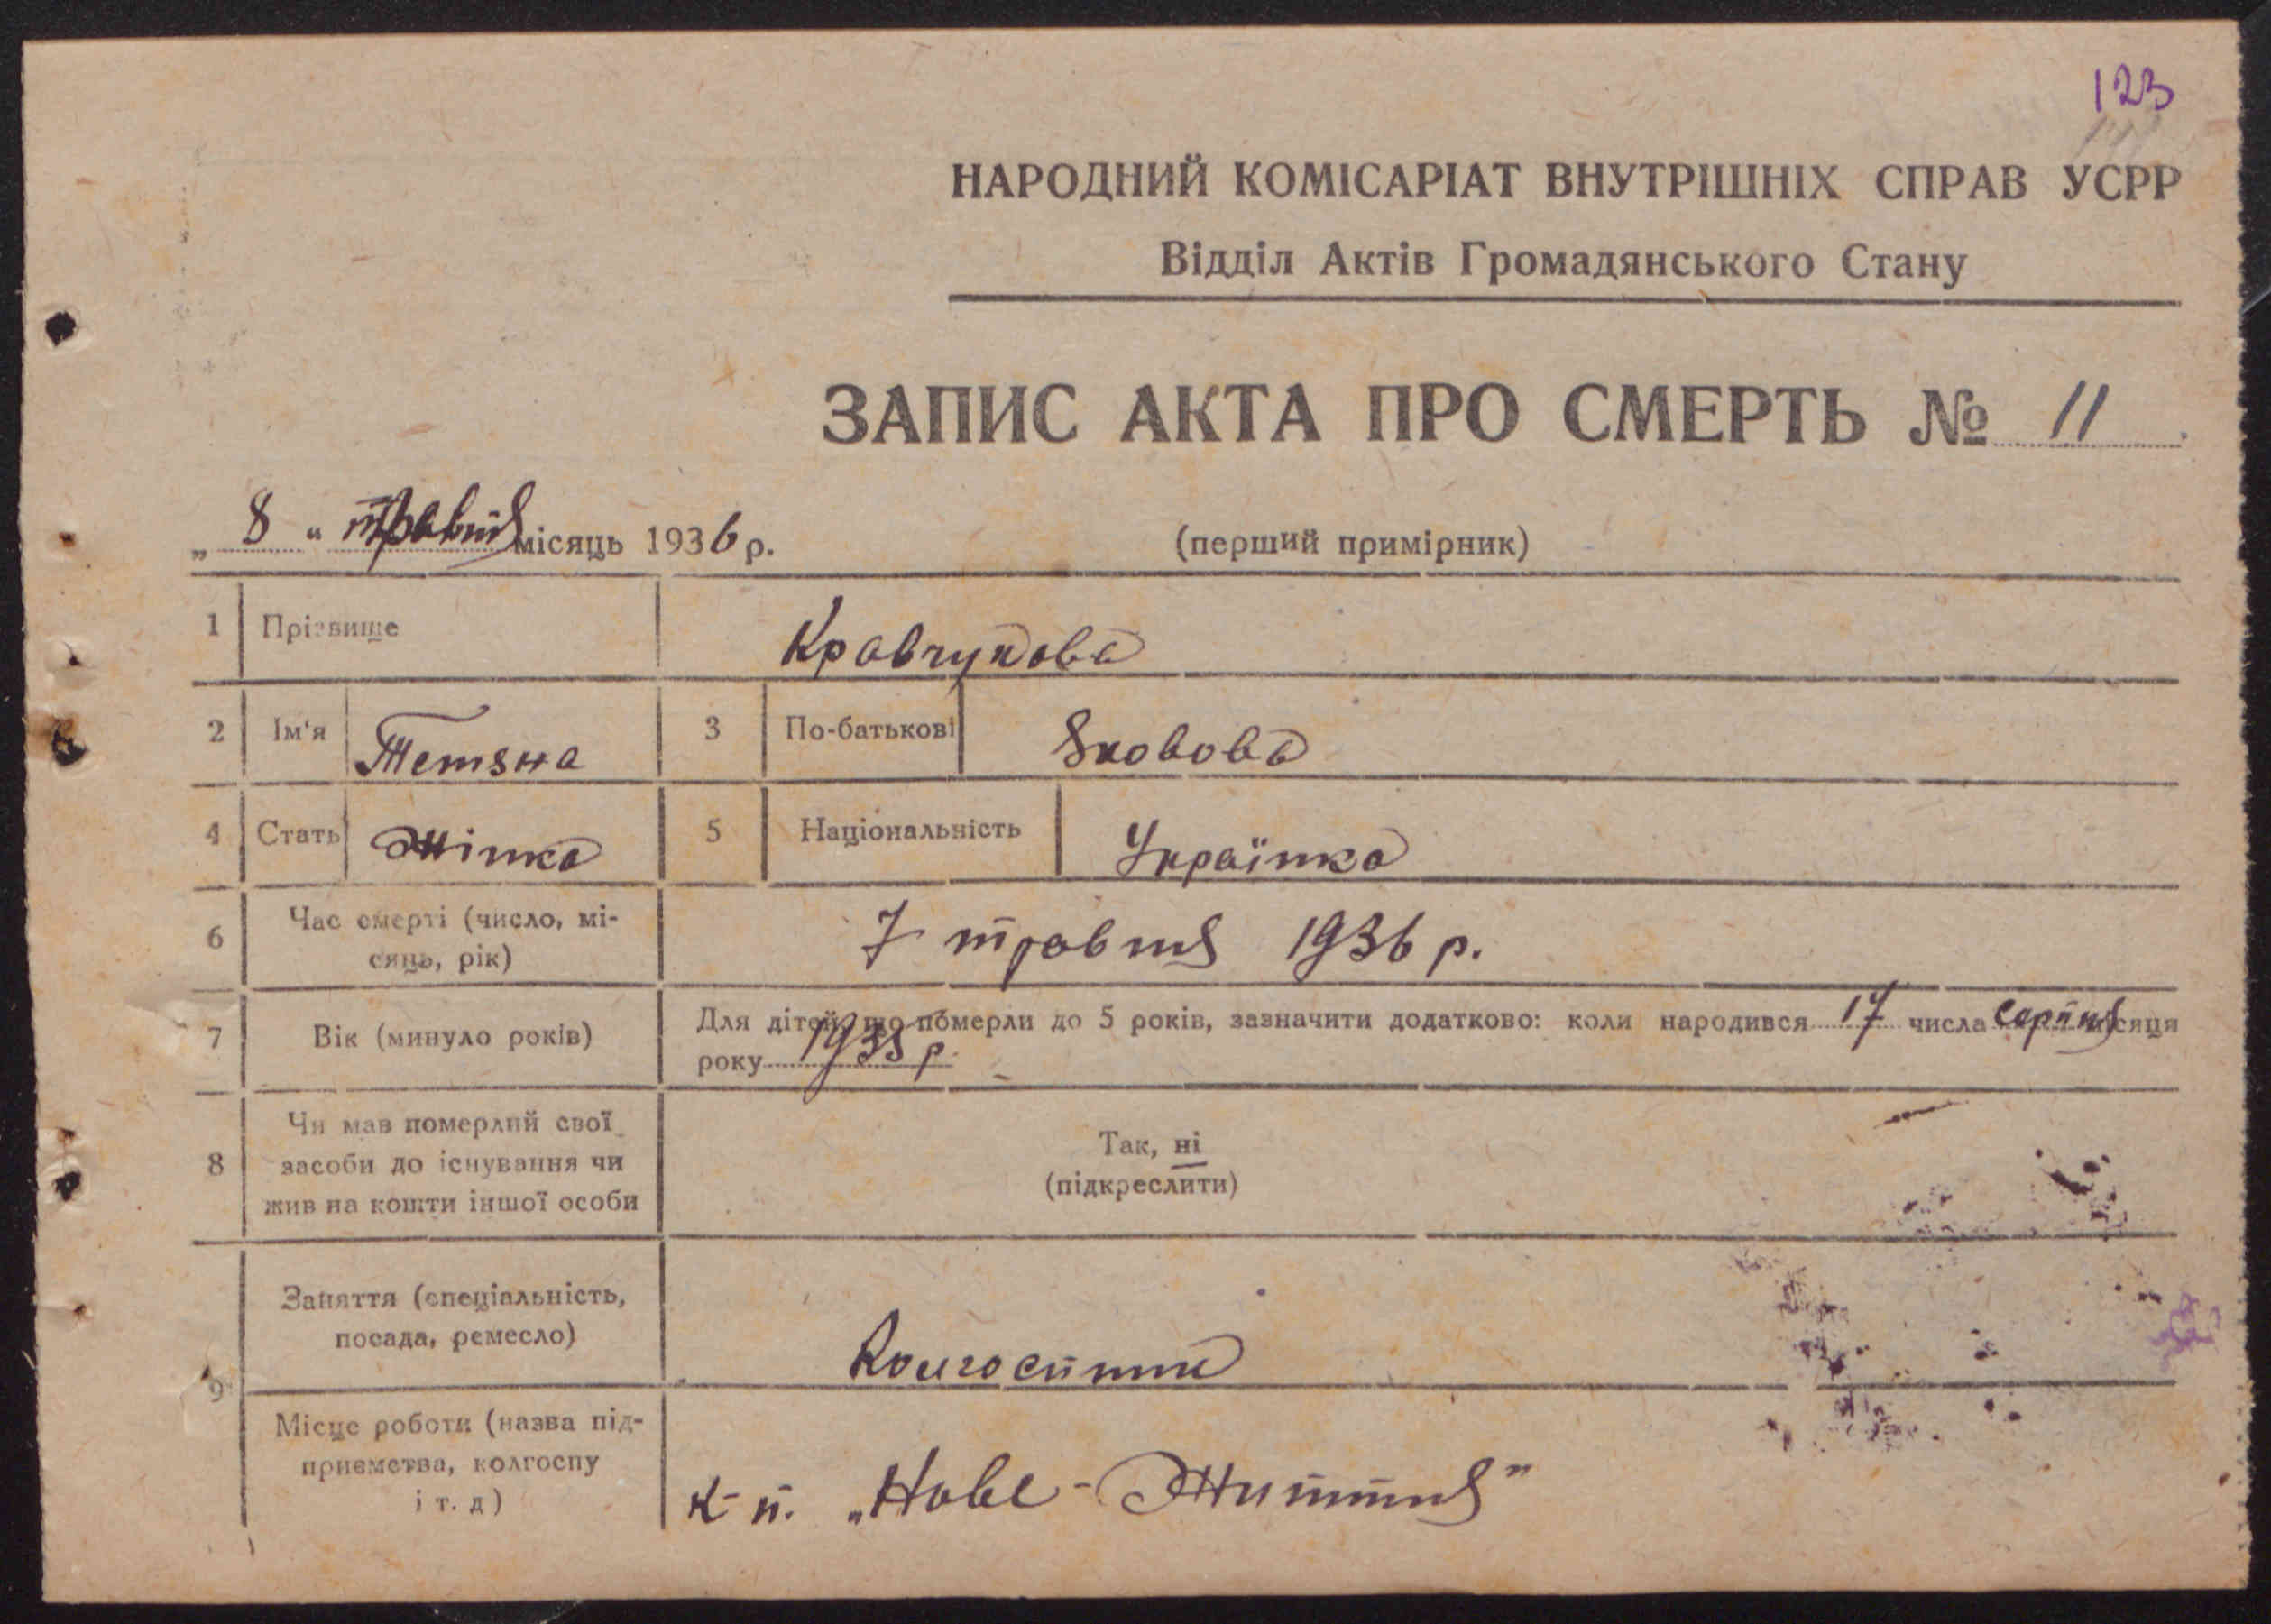 123
НАРОДНИЙ КОМІСАРІАТ ВНУТРІШНІХ СПРАВ УСРР
Відділ Актів Громадянського Стану
ЗАПИС АКТА ПРО СМЕРТЬ № 11
„ 8 “ травня місяць 1936 р.
(перший примірник)
1 Прізвище Кравчукова
2 Ім'я Тетяна 3 По-батькові Яковова
4 Стать Жінка 5 Національність Українка
6 Час смерті (число, мі-
сяць, рік) 7 травня 1936 р.
7 Вік (минуло років) Для дітей, що померли до 5 років, зазначити додатково: коли народився 17 числа Серпня місяця
року 1935 р.
8 Чи мав померлий свої
засоби до існування чи
жив на кошти іншої особи
Так, ні
(підкреслити)
9 Заняття (спеціальність,
посада, ремесло) Колгоспник
Місце роботи (назва під-
приємства, колгоспу
і т. д)
к-п. „Нове-Життя"